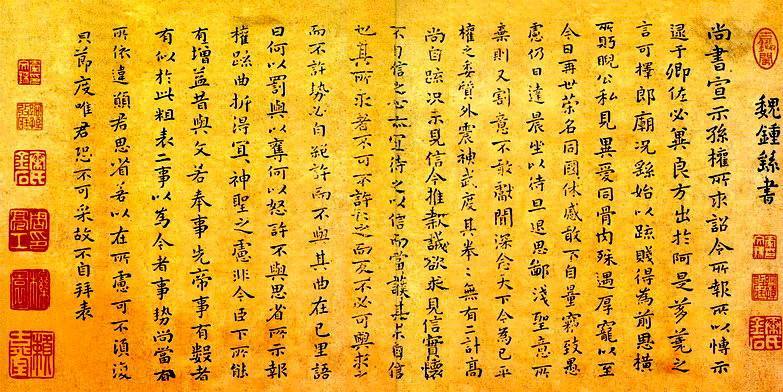 魏鍾繇書
尚書宣示孫權所求詔令所報所以博示
逮于卿佐必冀良方出於阿是芻蕘之
言可擇郎廟況繇始以疏賤得為前思橫
所眄睨公私見異愛同骨肉殊遇厚寵以至
今日再世榮名同國休慼敢不自量竊致愚
慮仍日達晨坐以待旦退思鄙淺聖意所
棄則又割意不敢獻聞深念天下今為已平
權之委質外震神武度其拳〻無有二計高
尚自疏況未見信今推款誠欲求見信實懷
不自信之心亦宜待之以信而當護其未自信
也其所求者不可不許許〻之而反不必可與求之
而不許勢必自絕許而不與其曲在己里語
曰何以罰與以奪何以怒許不與思省所示報
權疏曲折得宜〻神聖之慮非今臣下所能
有增益昔與文若奉事先帝事有數者
有似於此粗表二事以為今者事勢尚當有
所依違願君思省若以在所慮可不須復
只節度唯君恐不可采故不自拜表